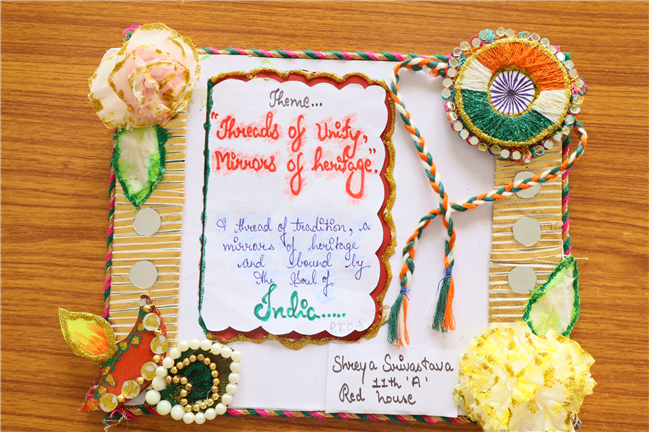 Theme...
"Threads of Unity,
Mirrors of heritage".
A thread of tradition, a
mirrors of heritage
and bound by
the Soul of
India.....
P.T.O
Shreya Srivastava
11th 'A'
Red house